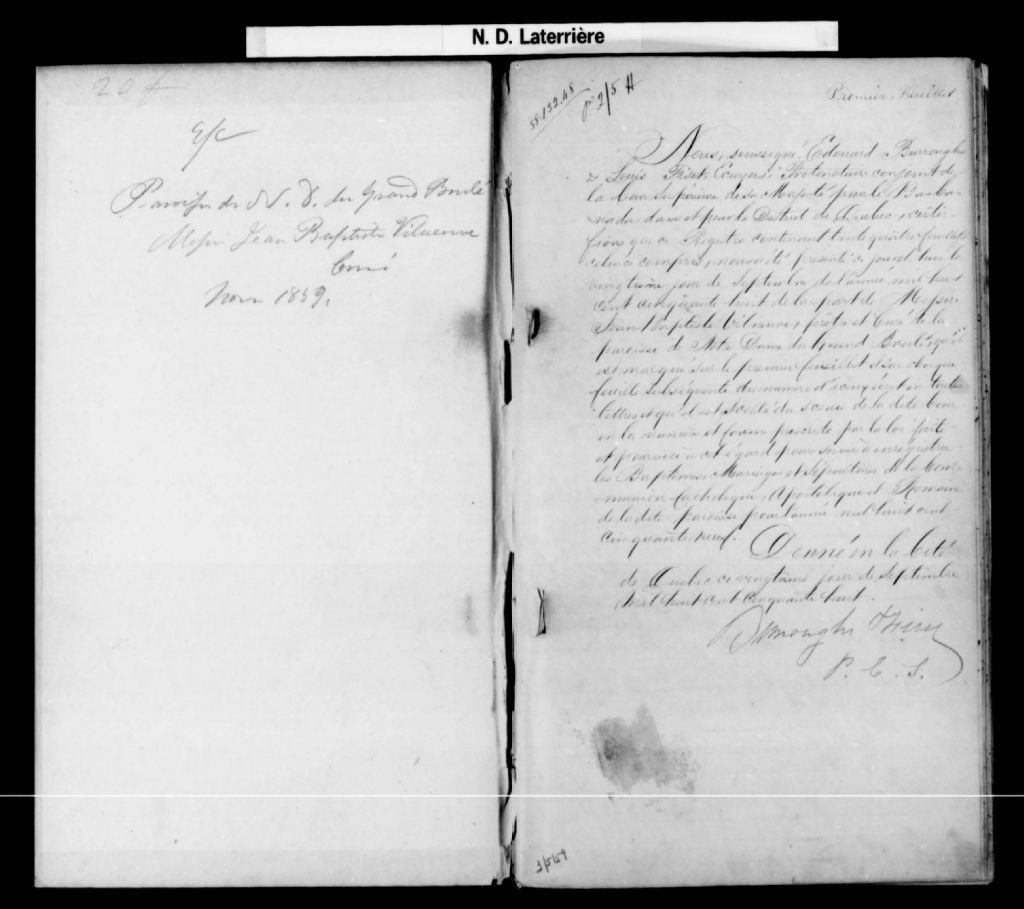 N. D. Laterrière
204
E/C
Paroisse de N. D. du Grand Brulé
Messire Jean Baptiste Villeneuve
Curé
Pour 1859.
58.132.48
p 2/5 H
Premier Feuillet
Nous, soussigné, Edouard Burroughs
& Louis Fiset, Ecuyers, Protonotaire conjoint de
la Cour Supérieure de Sa Majesté pour le Bas Ca-
nada dans et pour le District de Québec, certi-
fions que ce Registre contenant toute quatre feuillets
celui-ci compris, nous a été présenté ce jourd'hui le
vingtième jour de Septembre de l'année mil huit
cent cinquante huit de la part de Messire
Jean Baptiste Villeneuve, prêtre et Curé de la
paroisse de Notre Dame du Grand Brulé, qu'il
est marqué sur le premier feuillet et sur chaque
feuillet subséquent du numero d'icelui écrit en toutes
lettres et qu'il est scellé du sceau de la dite Cour
en la manière et forme prescrite par la loi faite
et pourvue à cet égard pour servir à enregistrer
les Baptêmes, Mariages et Sépultures de la Com-
munion Catholique, Apostolique et Romaine
de la dite paroisse pour l'année mil huit cent
cinquante neuf. Donné en la Cité
de Québec ce vingtième jour de Septembre
Mil huit cent cinquante huit.
Burroughs Fiset
P. C. S.
3/5/59